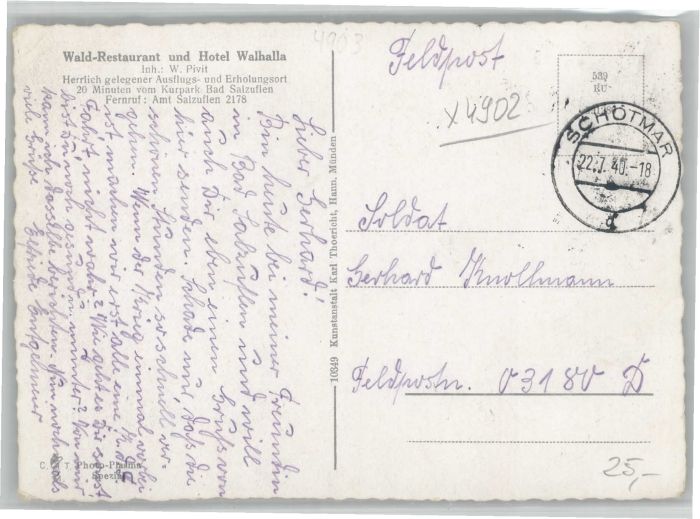 4903
Wald-Restaurant und Hotel Walhalla
Inh.: W. Pivit
Herrlich gelegener Ausflugs- und Erholungsort
20 Minuten vom Kurpark Bad Salzuflen
Fernruf: Amt Salzuflen 2178
Lieber Gerhard!
Bin heute bei meiner Freundin
in Bad Salzuflen und will
auch Dir eben einen Gruß von
hier senden. Schade nur, daß die
schönen Stunden so schnell ver-
gehn. Wenn der Krieg einmal vorbei
ist machen wir erst alle eine
Fahrt nicht wahr? Wie geht es Dir sonst
bist Du noch gesund u. munter? Von mir
kann ich dasselbe berichten. Nun nochmals
viele Grüße Elfriede
C. & T. Photo-Plasma
Spezial
10349 Kunstanstalt Karl Thoericht, Hann. Münden
Feldpost
x4902
539
RU
SCHÖTMAR
22.7.40.-18
d
Soldat
Gerhard Knollmann
Feldpostnr. 03180 D
25,-